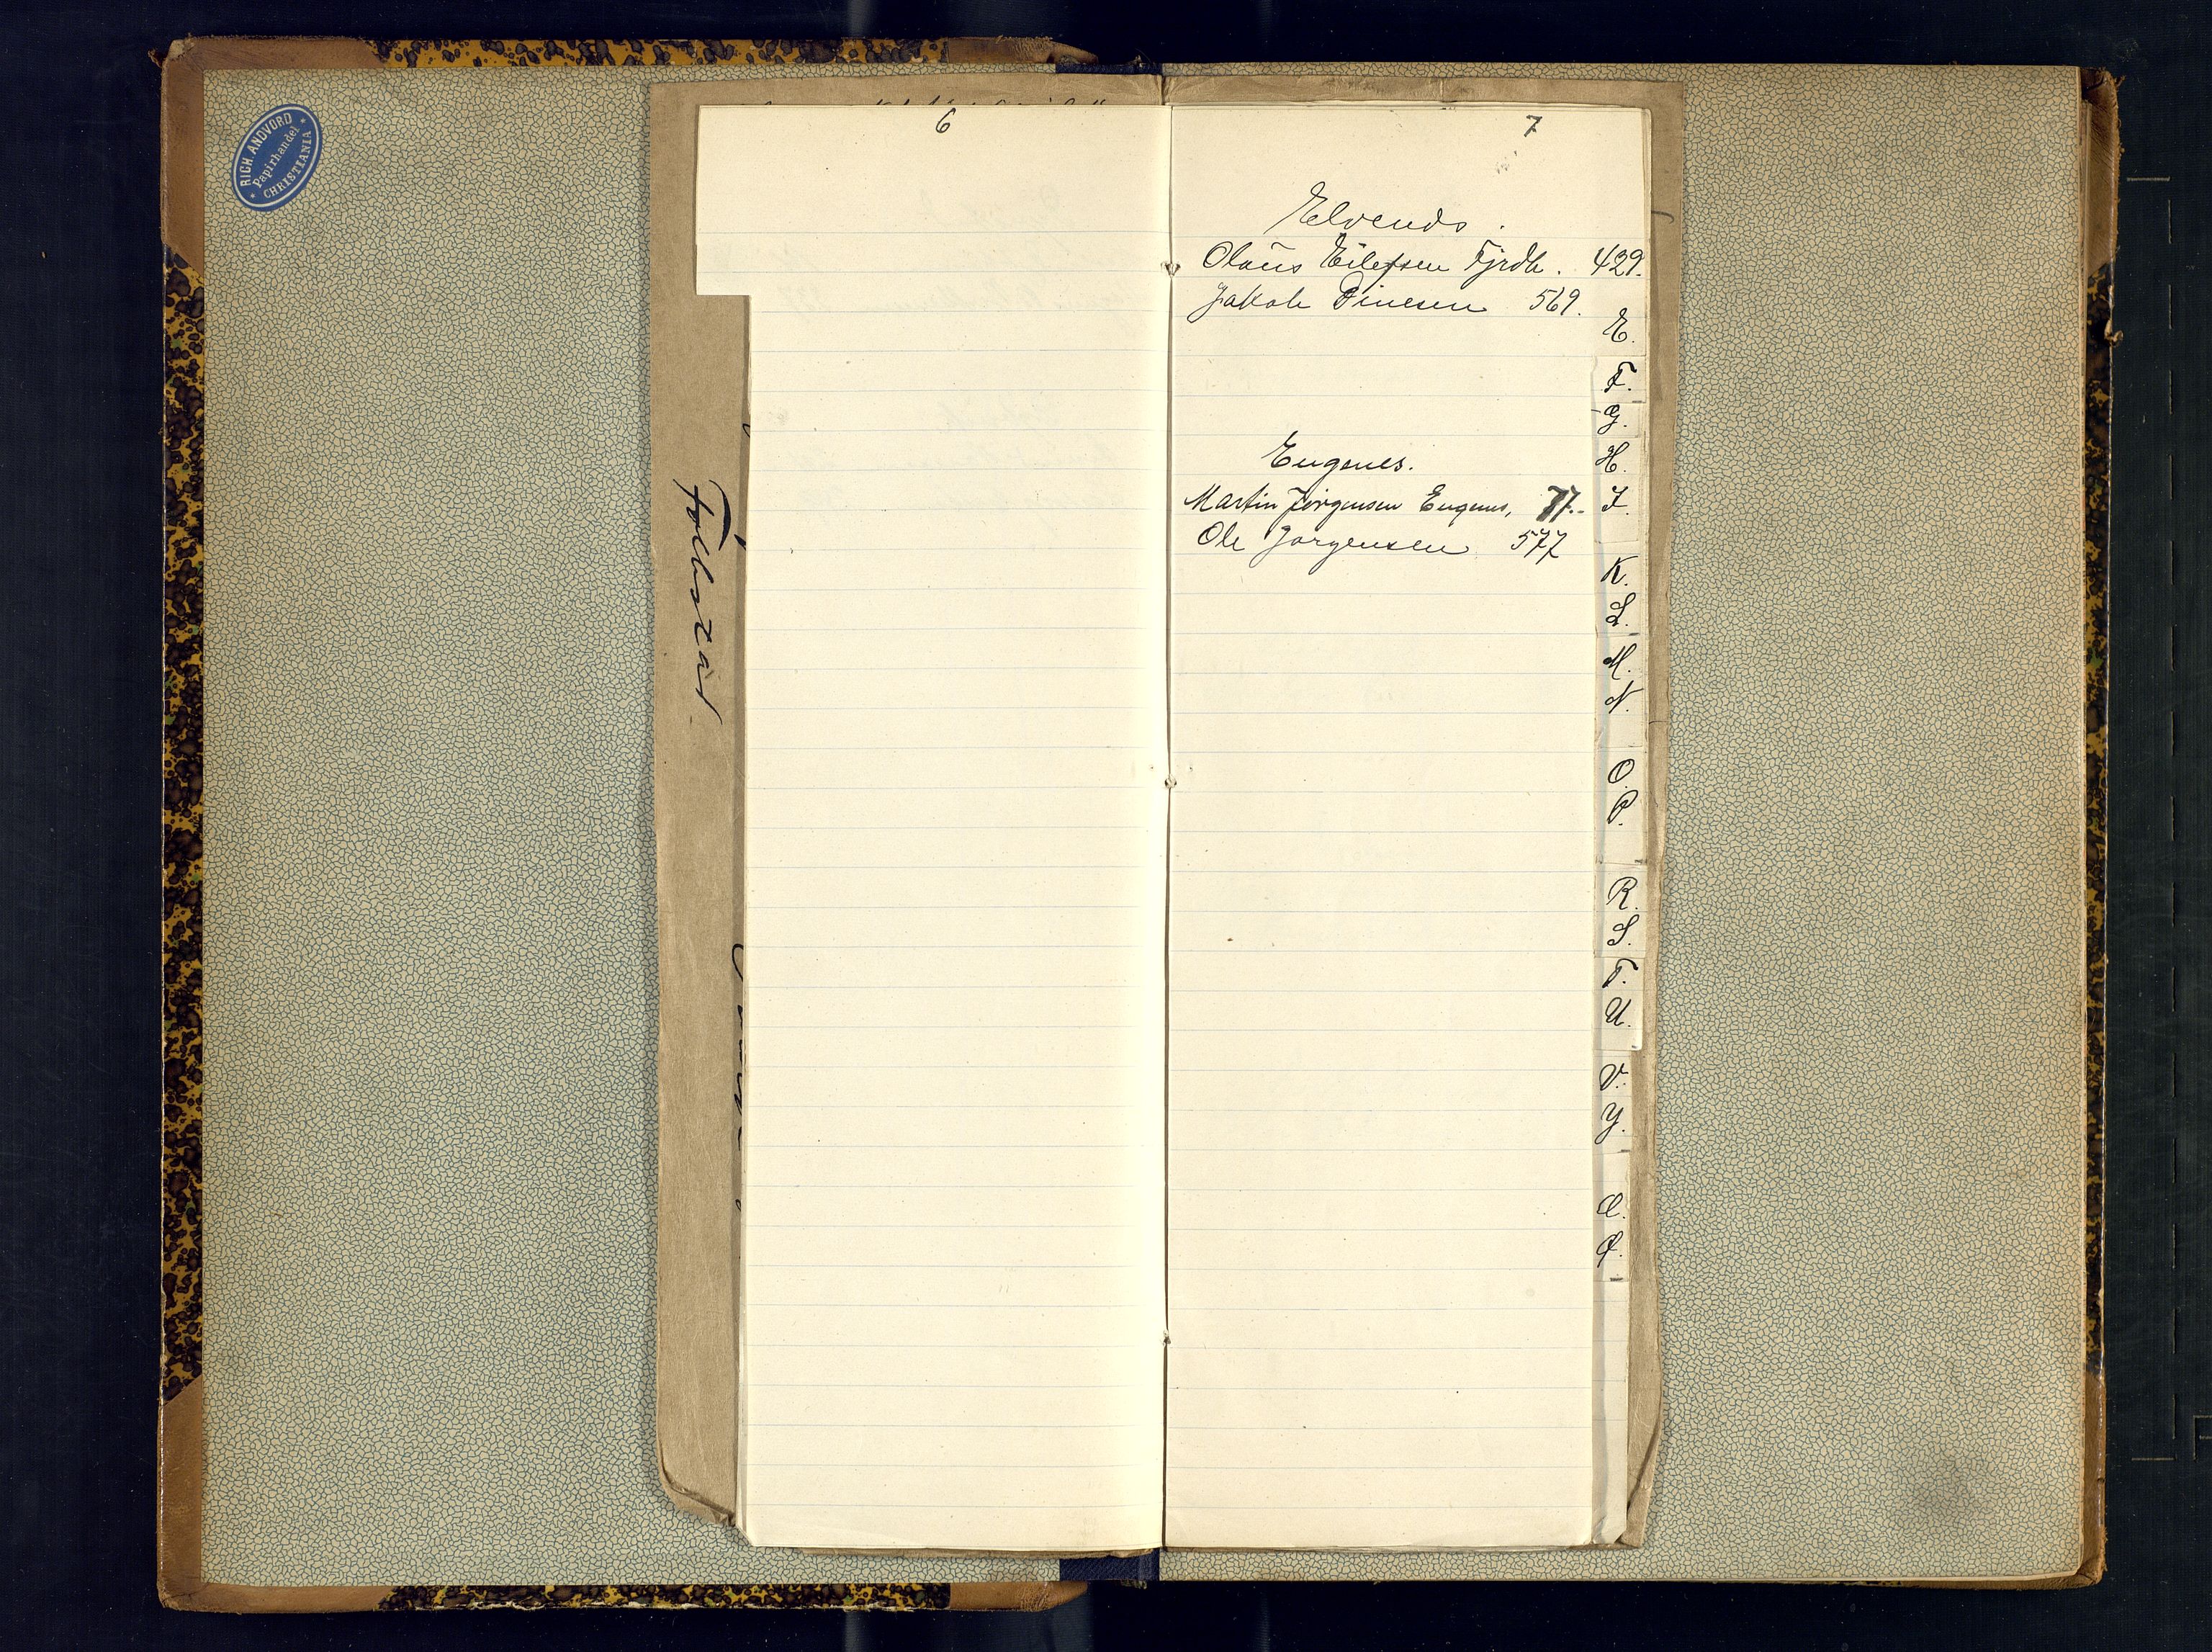 RICH. ANDVORD
Papirhandel
CHRISTIANIA
6
7
Elvenes.
Olaus Eilefsen Fjrdb. 429.
Jakob Dinesen 569.
Eugenes.
Martin Jörgensen Eugenes, 77.
Ole Jörgensen 577
E.
F.
G.
H.
I.
K.
L.
M.
N.
O.
P.
R.
S.
T.
U.
V.
Y.
Æ.
Ø.